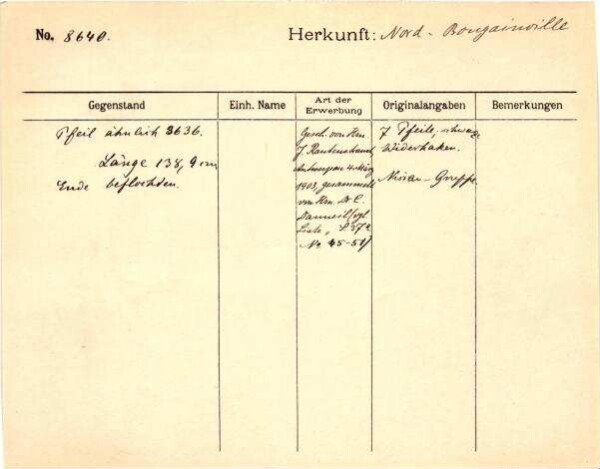 No. 8640. Herkunft: Nord-Bougainville
Gegenstand Einh. Name Art der Erwerbung Originalangaben Bemerkungen
Pfeil ähnlich 3636.
Länge 138,9 cm
Ende beflochten.
Gesch. von Hrn.
J. Rautenstrauch,
Antwerpen 4. März
1903, gesammelt
von Hrn. Dr. E.
Liste, S. 57
No 45-51)
7 Pfeile, schwarze
Widerhaken.
Nissan-Gruppe.